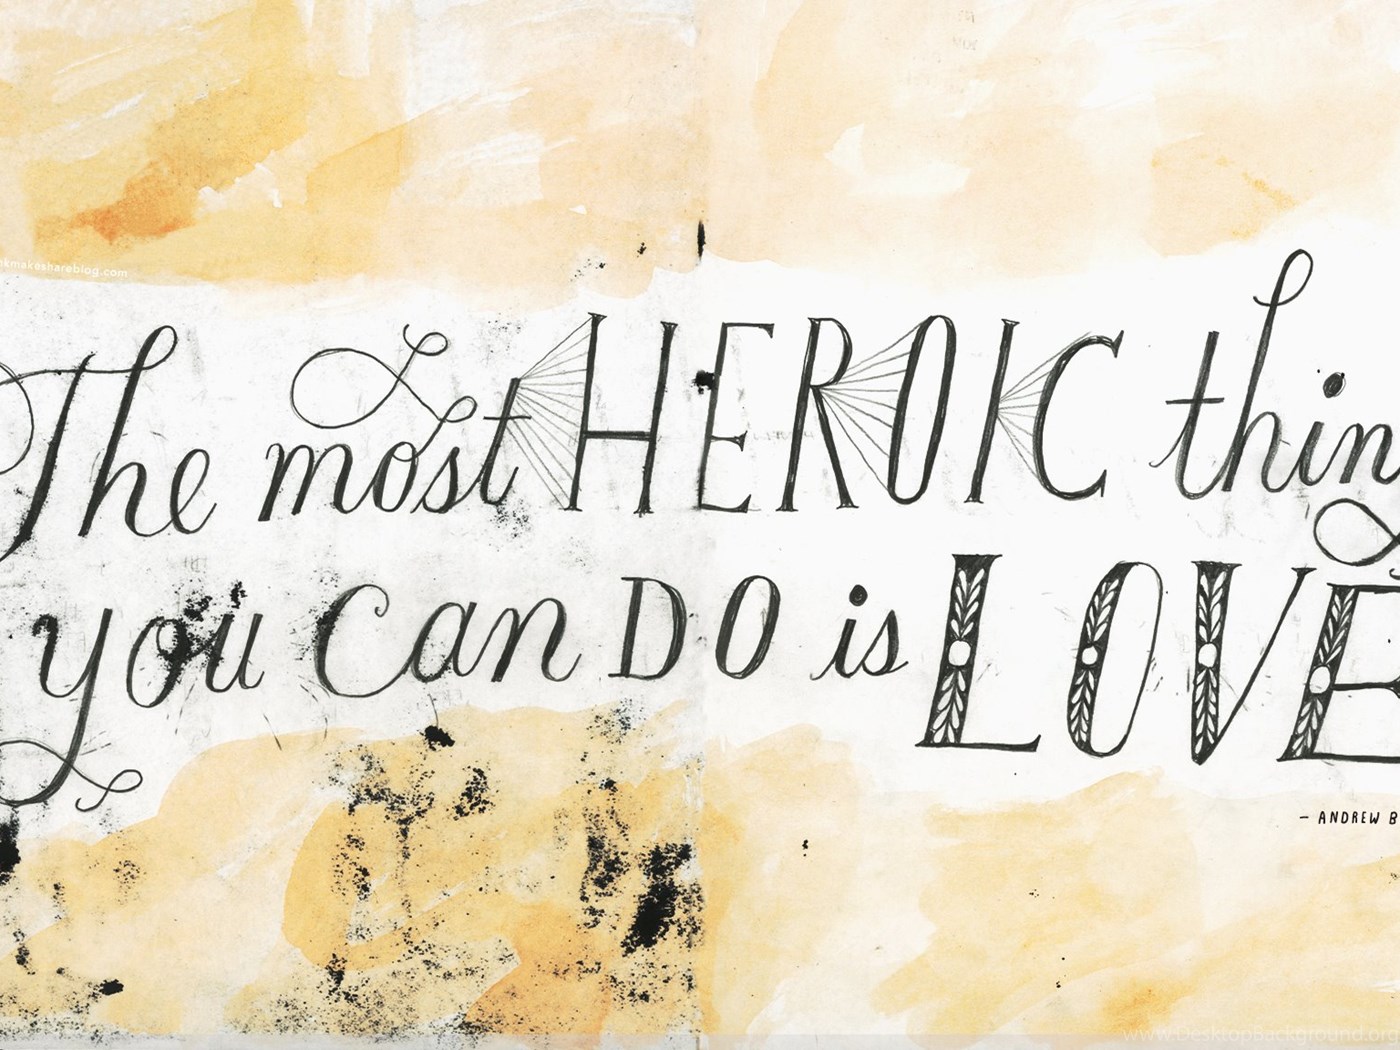 kmakeshareblog.com
The most HEROIC thing
you can DO is LOVE
- ANDREW B
www.DesktopBackground.org